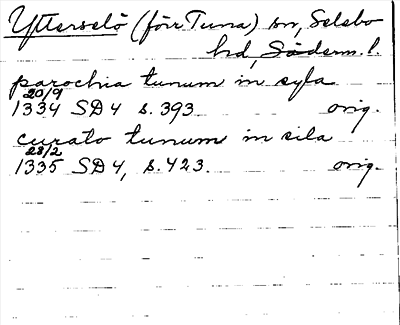 Ytterselö (förr Tuna) sn, Selebo
hd, Söderm. l.
parochia tunum in syla
20/9
1334 SD 4 s. 393 orig.
curato tunum in sila
28/2
1335 SD 4, s. 423. orig.